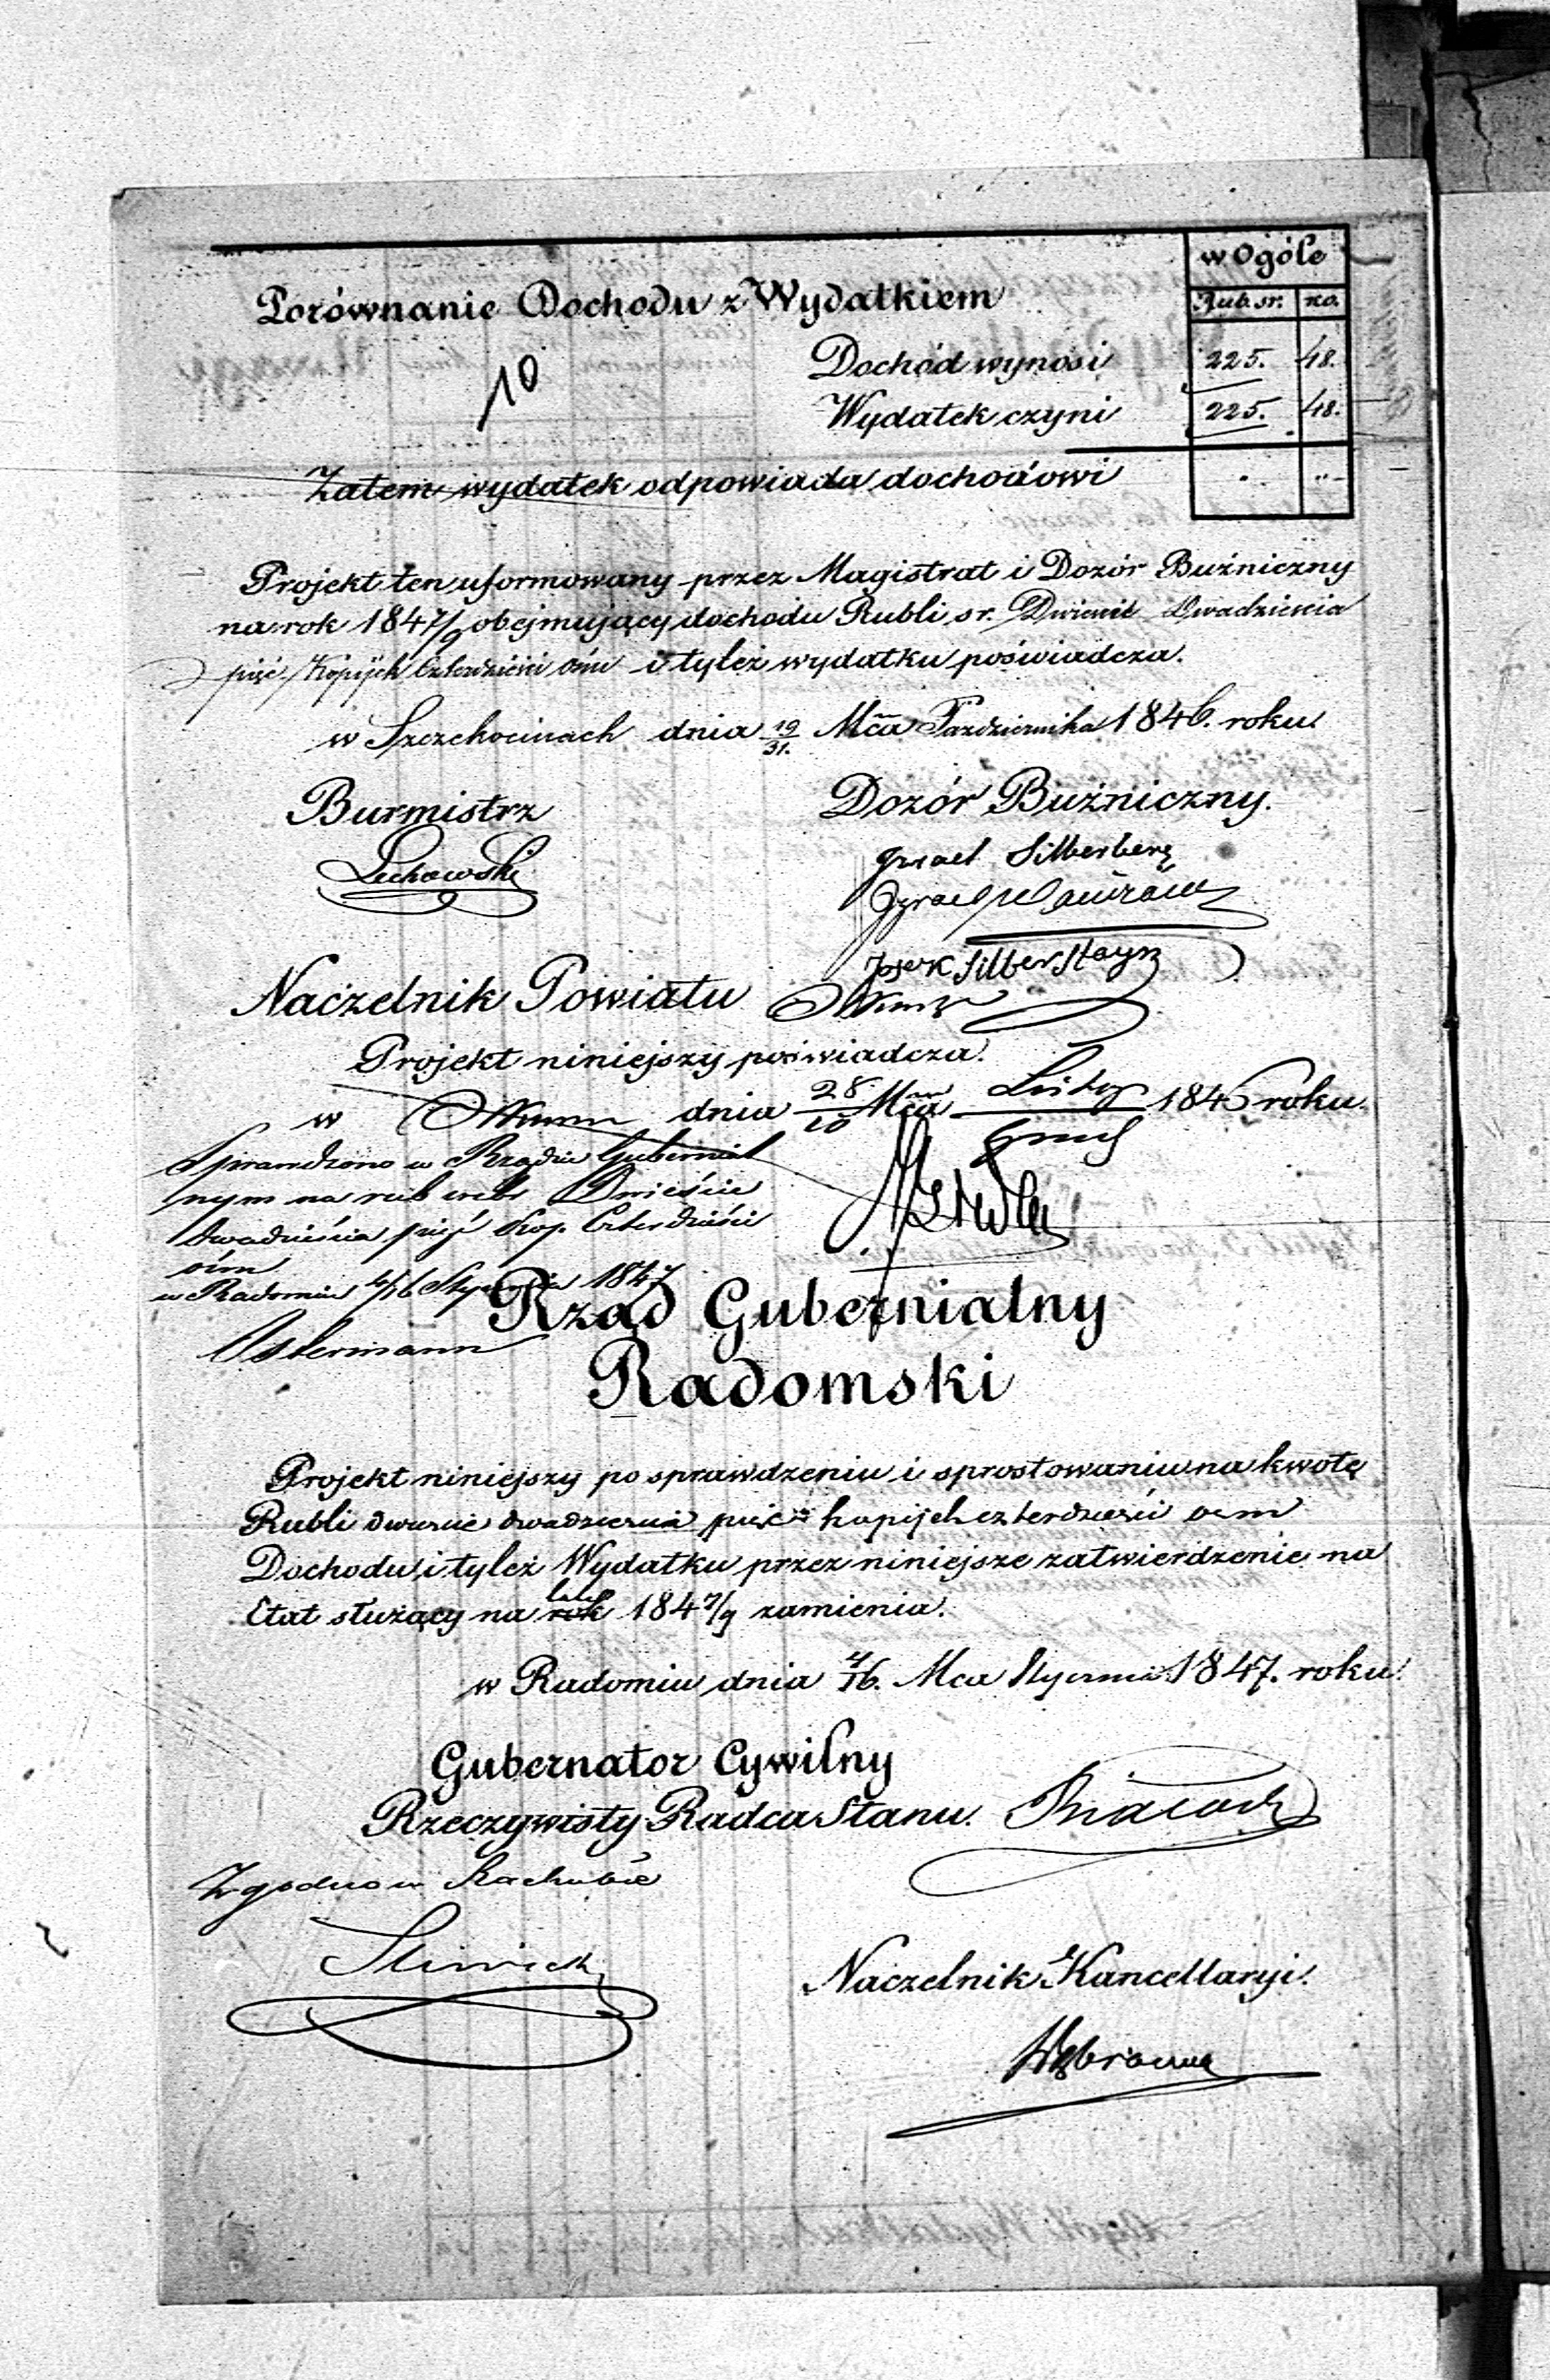 w Ogóle
Porównanie Dochodu z Wydatkiem
Rub sr. ko.
10
Dochód wynosi 225. 48.
Wydatek czyni 225. 48.
Zatem wydatek odpowiada dochodowi
Projekt ten uformowany przez Magistrat i Dozór Buźniczny
na rok 1847/9 obejmujący dochodu Rubli sr. Dwieście Dwadzieścia
pięć, Kopijek Czterdzieści ośm i tyleż wydatku poświadcza.
w Szczekocinach dnia 19/31. Mca Października 1846. roku.
Burmistrz
Dozór Buźniczny.
Lechowski
Israel Silberberg
Josek Silberstayn
Naczelnik Powiatu
Projekt niniejszy poświadcza.
w dnia 28/10 Mca Listop 1846 roku.
Sprawdzono w Rządzie Gubernial
nym na rub srebr Dwieście
dwadzieścia pięć kop. Czterdzieści
ośm
w Radomiu 4/16 Stycznia 1847
Ostermann
Rząd Gubernialny
Radomski
Projekt niniejszy po sprawdzeniu i sprostowaniu na kwotę
Rubli dwieście dwadzieścia pięć kopijek czterdzieści ośm
Dochodu i tyleż Wydatku przez niniejsze zatwierdzenie na
Etat służący na rok lata 1847/9 zamienia.
w Radomiu dnia 4/16. Mca Stycznia 1847. roku.
Gubernator Cywilny
Rzeczywisty Radca Stanu.
Zgodno w Rachubie
Naczelnik Kancellaryi.